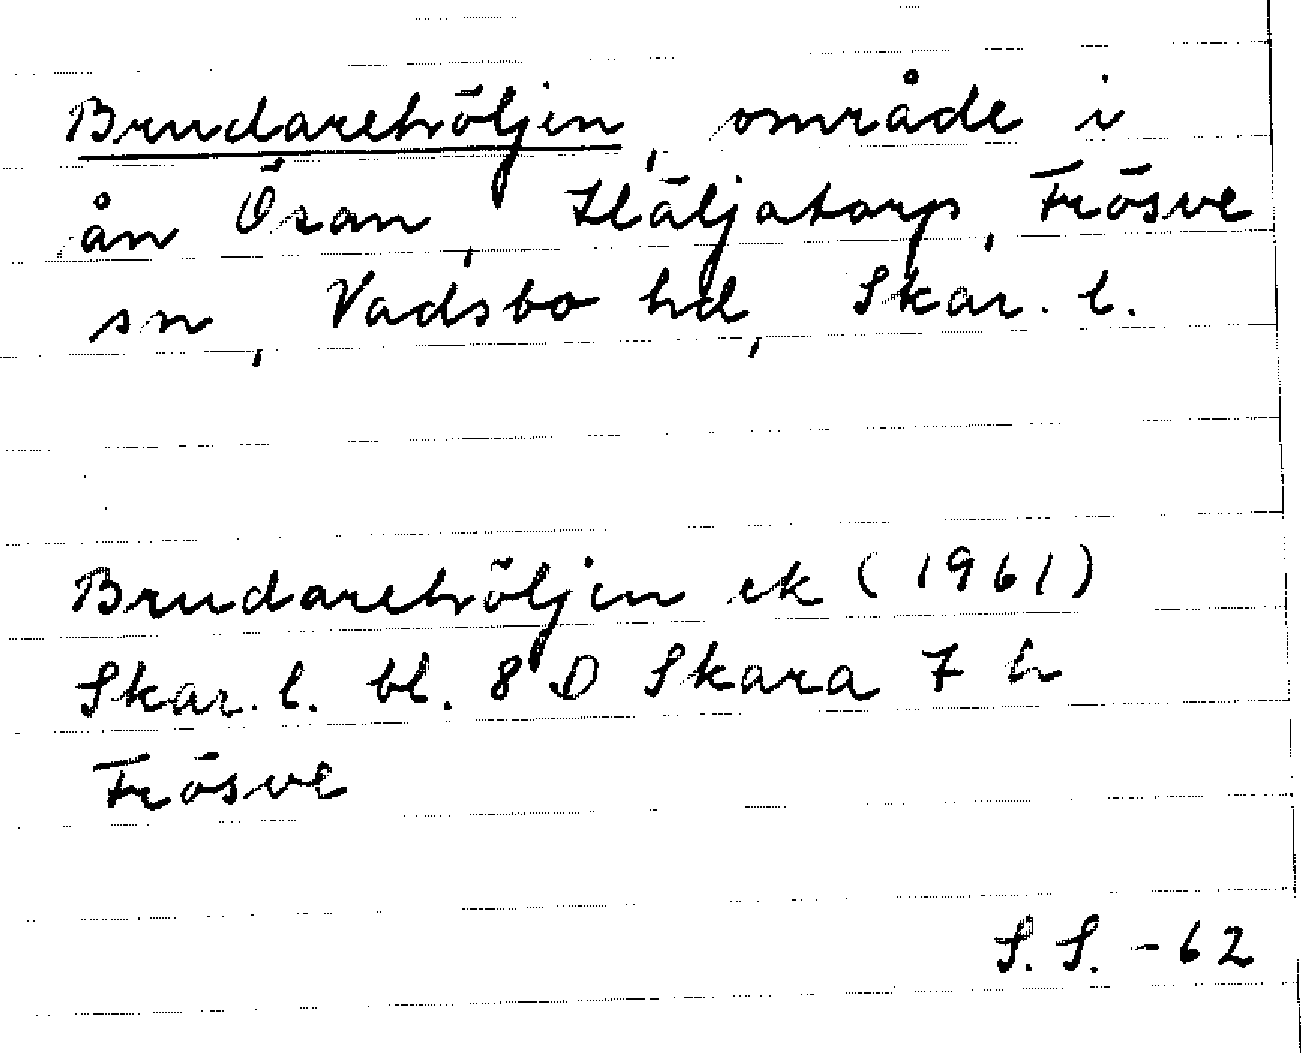 Brudarehöljen, område i
ån Ösan, Häljatorp, Frösve
sn, Vadsbo hd, Skar. l.
Brudarehöljen ek (1961)
Skar. l. bl. 8 D Skara 7 h
Frösve
S. S. -62